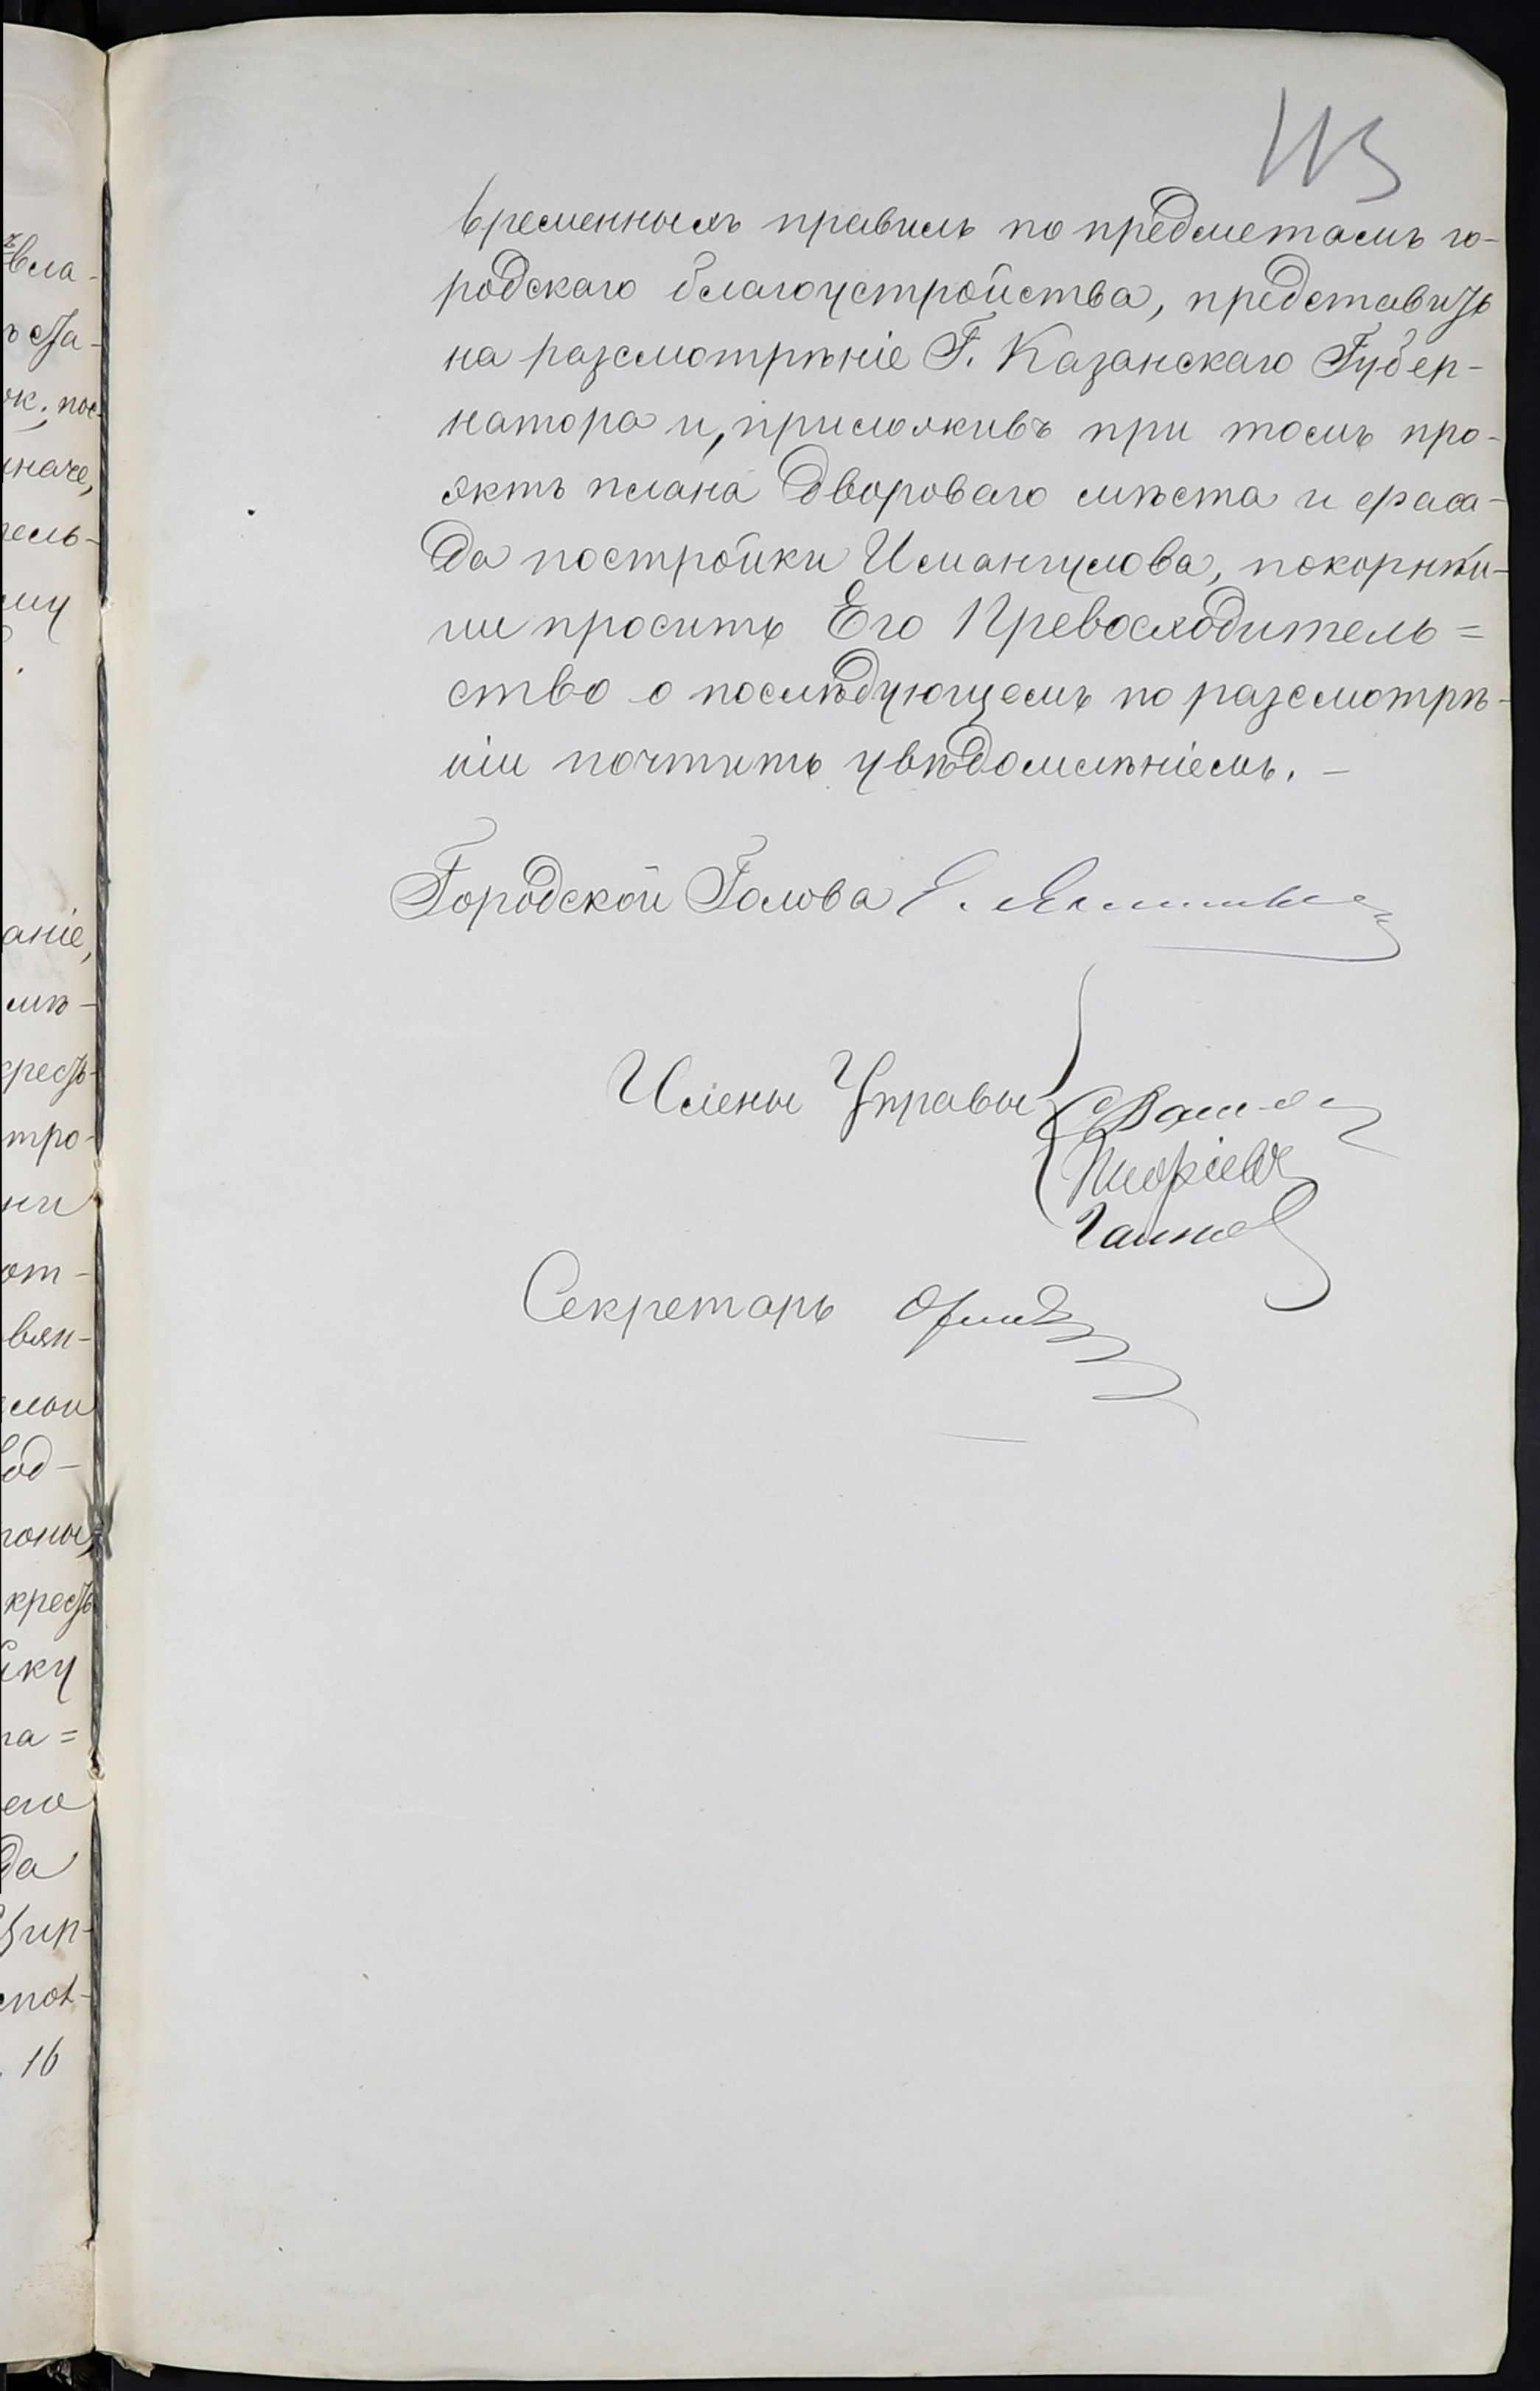 113
временныхъ правилъ по предметамъ го-
родскаго благоустройства, представить
на разсмотрѣніе Г. Казанскаго Губер-
натора и, приложивъ при томъ про-
эктъ плана двороваго мѣста и фаса-
да постройки Исмангулова, покорнѣй-
ши просить Его Превосходитель=
ство о послѣдующемъ по разсмотрѣ-
ніи почтить увѣдомлѣніемъ. —
Городской Голова
Члены Управы
Секретарь
вла-
ста-
иначе,
тель-
му
аніе,
мѣ-
крест-
тро-
ни
от-
вян-
од-
роны,
крест
йку
га=
его
да
16